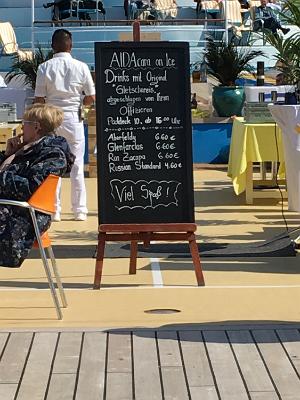 AIDAcara on Ice
Drinks mit Original
Gletschereis,
abgeschlagen von Ihren
Offizieren
Pooldeck 10, ab 16:00 Uhr
Aberfeldy 6.60 €
Glenfarclas 6.60 €
Ron Zacapa 6.60 €
Russian Standard 4.60 €
Viel Spaß!